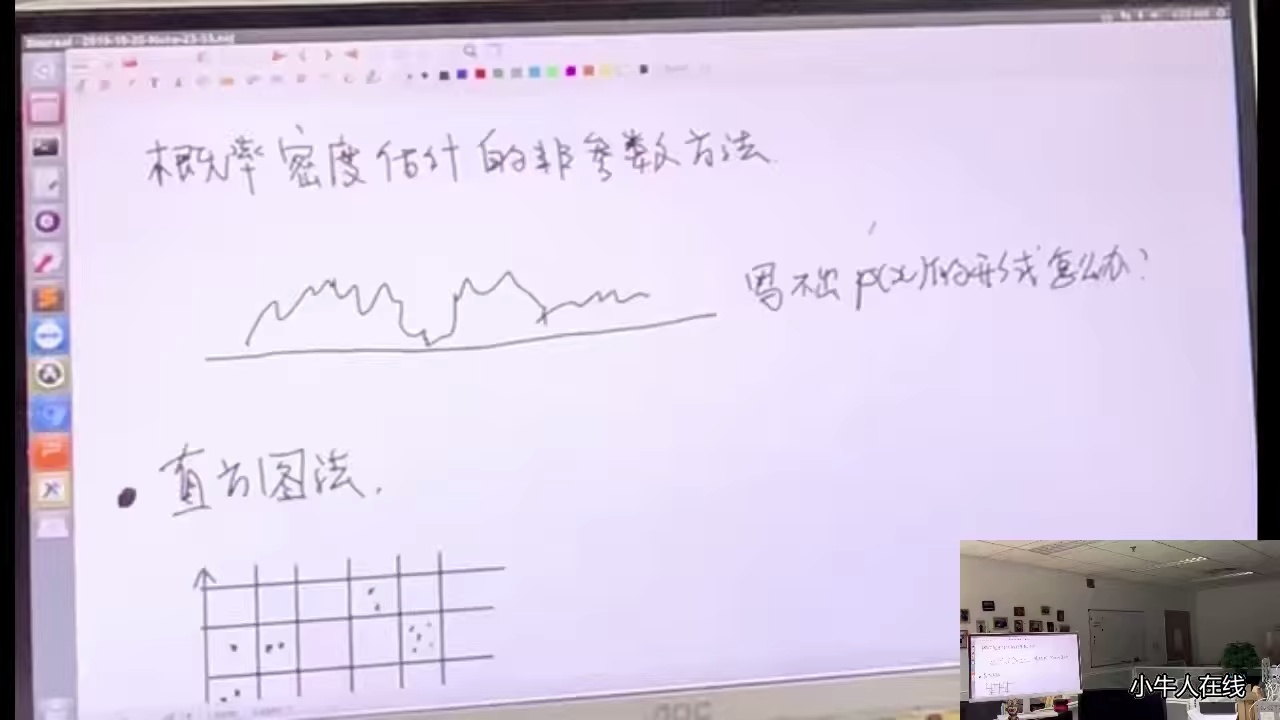 概率密度估计的非参数方法.
写不出 p(x)的形式怎么办?
直方图法.
小牛人在线